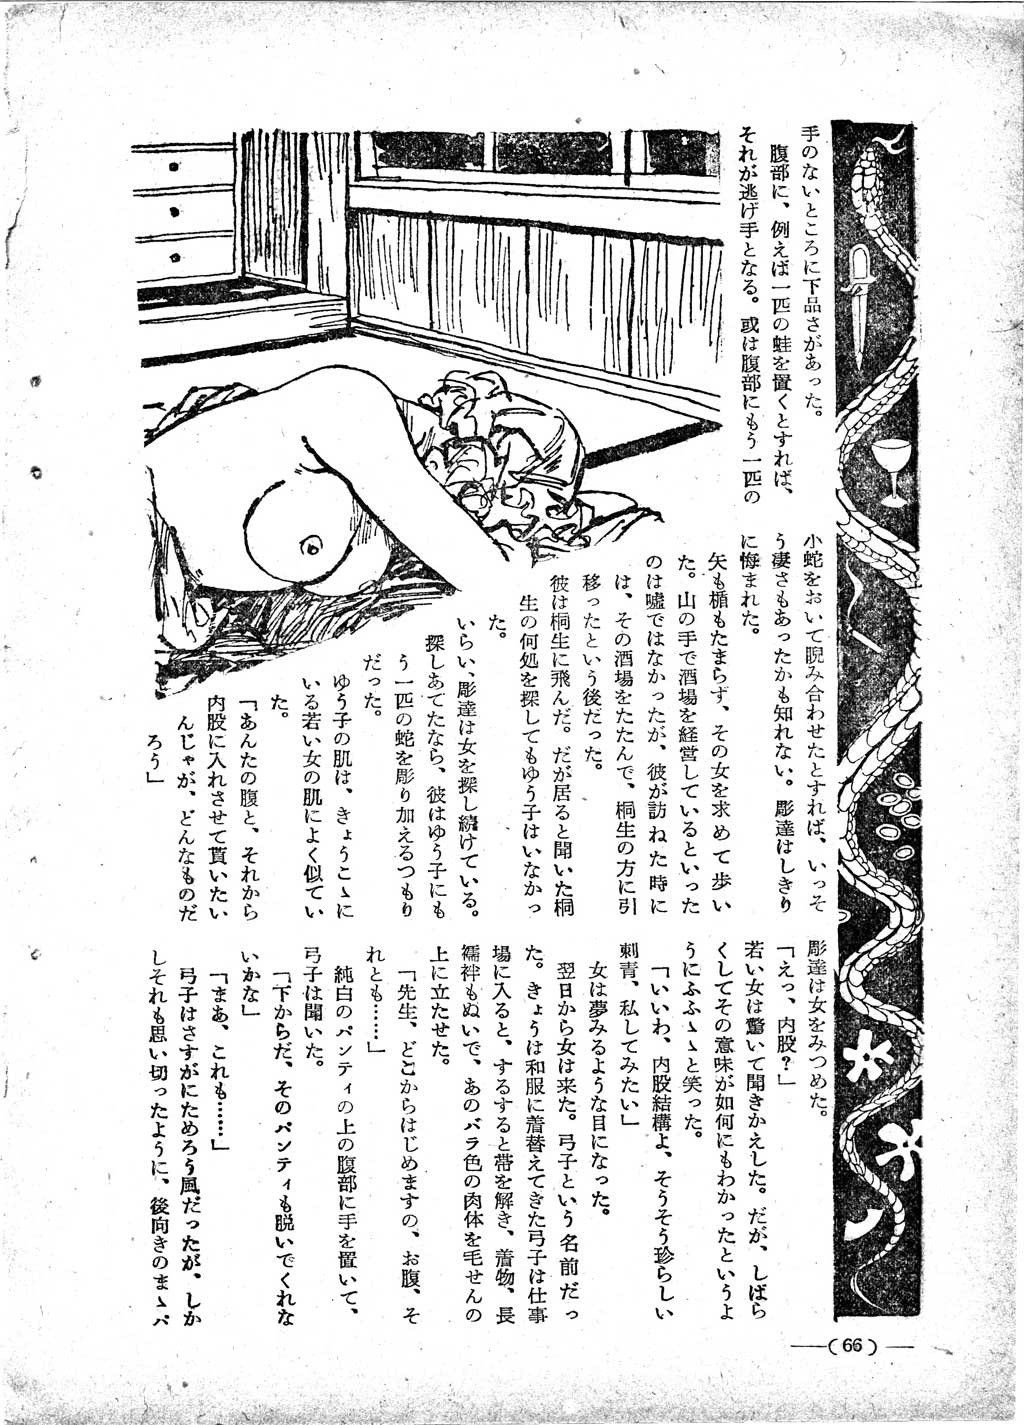 手のないところに下品さがあった。
腹部に、例えば一匹の蛙を置くとすれば、
それが逃げ手となる。或は腹部にもう一匹の
小蛇をおいて睨み合わせたとすれば、いっそ
う凄さもあったかも知れない。彫達はしきり
に悔まれた。
矢も楯もたまらず、その女を求めて歩い
た。山の手で酒場を経営しているといった
のは嘘ではなかったが、彼が訪ねた時に
は、その酒場をたたんで、桐生の方に引
移ったという後だった。
彼は桐生に飛んだ。だが居ると聞いた桐
生の何処を探してもゆう子はいなかっ
た。
いらい、彫達は女を探し続けている。
探しあてたなら、彼はゆう子にも
う一匹の蛇を彫り加えるつもり
だった。
ゆう子の肌は、きょうこゝに
いる若い女の肌によく似てい
た。
「あんたの腹と、それから
内股に入れさせて貰いたい
んじゃが、どんなものだ
ろう」
彫達は女をみつめた。
「えっ、内股？」
若い女は驚いて聞きかえした。だが、しばら
くしてその意味が如何にもわかったというよ
うにふふゝゝと笑った。
「いいわ、内股結構よ、そうそう珍らしい
刺青、私してみたい」
女は夢みるような目になった。
翌日から女は来た。弓子という名前だっ
た。きょうは和服に着替えてきた弓子は仕事
場に入ると、するすると帯を解き、着物、長
襦袢もぬいで、あのバラ色の肉体を毛せんの
上に立たせた。
「先生、どこからはじめますの、お腹、そ
れとも……」
純白のパンティの上の腹部に手を置いて、
弓子は聞いた。
「下からだ、そのパンティも脱いでくれな
いかな」
「まあ、これも……」
弓子はさすがにためろう風だったが、しか
しそれも思い切ったように、後向きのまゝパ
(66)